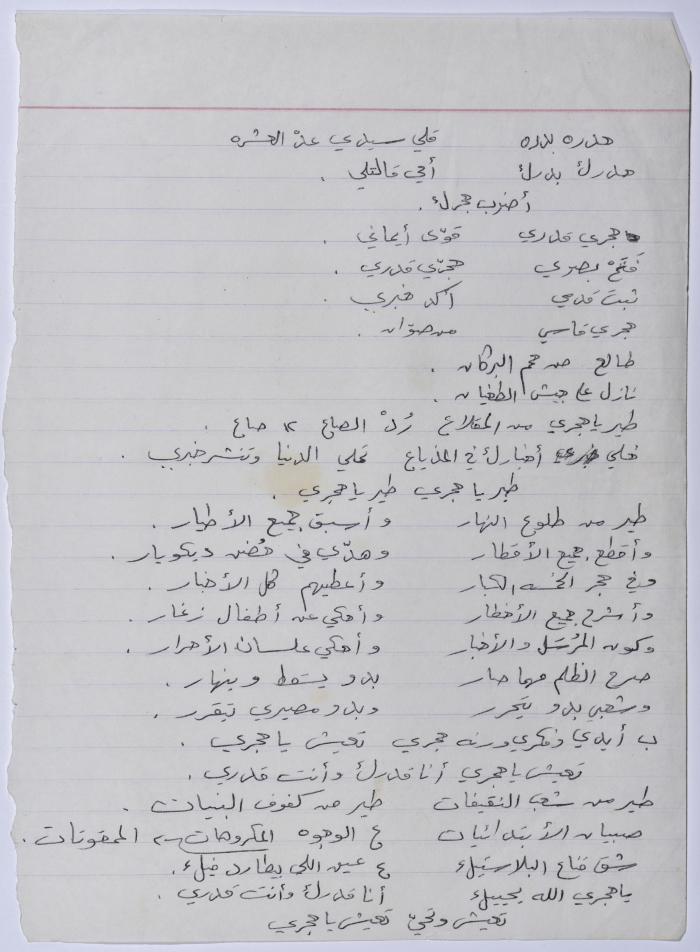 هدره بدره قلي سيدي عد العشره
هدرك بدرك أمي قالتلي .
أضرب حجرك .
حجري قدري قوّى أيماني .
فَتَح بصري حجرّي قدري .
ثبت قدمي أكد خبري .
حجري قاسي من صوّان .
طالع من حمم البركان .
نازل ع جيش الطغيان .
طير يا حجري من المقلاع رُدْ الصاع صاع .
خلي أخبارك في المذياع تملي الدنيا وتنشر خبري .
طير يا حجري طير يا حجري .
طير من طلوع النهار وأسبق جميع الأطيار .
وأقطع جميع الأقطار وهدّي في حُضن ديكويار .
وفي حجر الخمسه الكبار وأعطيهم كل الأخبار .
وأشرح جميع الأخطار وأحكي عن أطفال زغار .
وكون المُرسَل والأخبار وأحكي علسان الأحرار .
صرح الظلم مهما صار بدو يسقط وينهار .
وشعبي بدو يتحرر وبدو مصيري تيقرر .
ب أيدي وفكري ورنه حجري تعيش يا حجري .
تعيش يا حجري أنا قدرك وأنت قدري .
طير من شعب النقيفات طير من كفوف البنيات .
صبيان الأبتدائيات ع الوجوه المكروهات الممقوتات .
شق قناع البلاستيك ع عين اللي بيطارد فيك .
يا حجري الله يحييك أنا قدرك وأنت قدري .
تعيش وتحيّ تعيش يا حجري